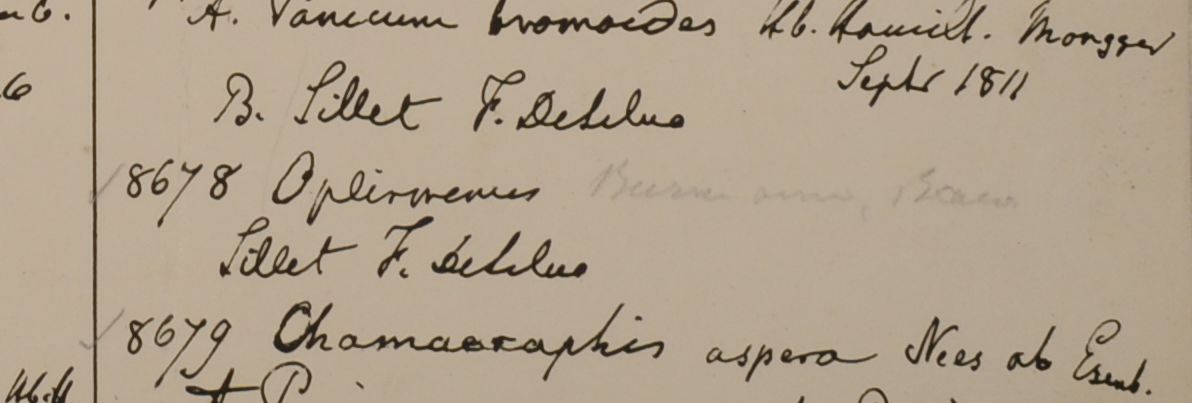 A. Panicum bromoides Hb. Hamilt. Mongger
Septr 1811
B. Sillet F. DeSilva
8678 Oplismenus Burmanni, Beauv
Sillet F. deSilva
8679 Chamaeraphis aspera Nees ab Esenb.
Hb. H